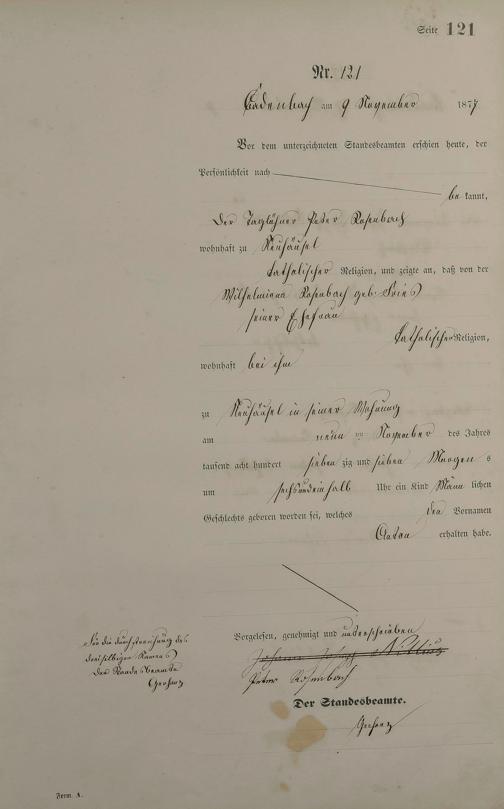 Seite 121
Nr. 121
Cadenbach am 9 November 1877
Vor dem unterzeichneten Standesbeamten erschien heute, der
Persönlichkeit nach
be kannt,
der Taglöhner Peter Rosenbach
wohnhaft zu Neuhäusel
katholischer Religion, und zeigte an, daß von der
Wilhelmina Rosenbach geb. Fries
seiner Ehefrau
katholischer Religion,
wohnhaft bei ihm
zu Neuhäusel in seiner Wohnung
am neun ten November des Jahres
tausend acht hundert sieben zig und sieben Morgen s
um sechs und einhalb Uhr ein Kind männ lichen
Geschlechts geboren worden sei, welches den Vornamen
Anton erhalten habe.
Vorgelesen, genehmigt und unterschrieben
Johann
Peter Rosenbach
Für die Durchstreichung des
dreisilbigen Namens
der Standesbeamte
Der Standesbeamte.
Form A.